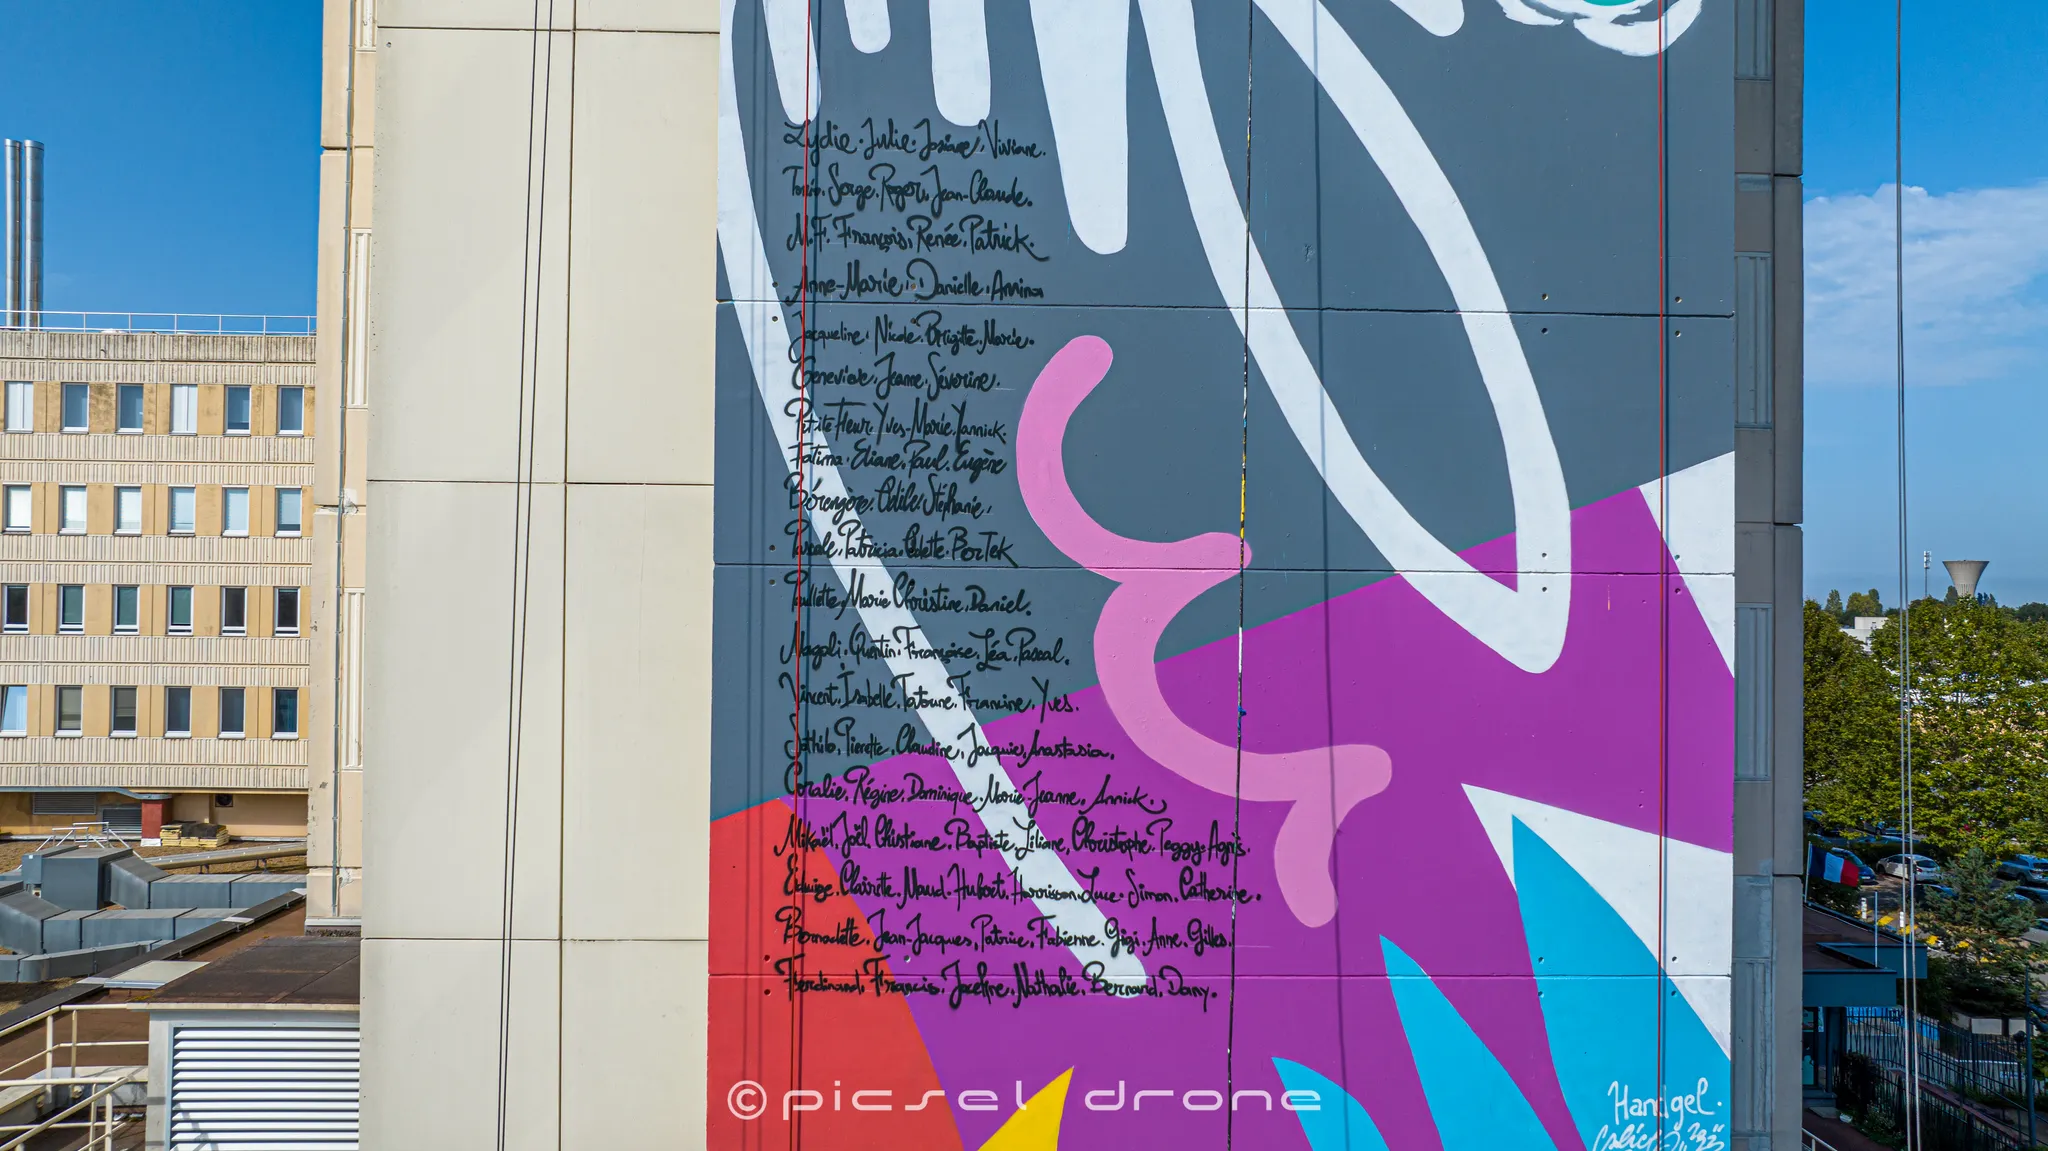 Lydie. Julie. Josiane. Viviane.
Serge. Roger. Jean-Claude.
M.F. François. Renée. Patrick.
Anne-Marie. Danielle. Amina
Jacqueline. Nicole. Brigitte. Marie.
Geneviève. Jeanne. Séverine.
Petite Fleur. Yves-Marie. Yannick.
Fatima. Eliane. Paul. Eugène
Bérengère. Odile. Stéphanie.
Pascale. Patricia. BerTeK
Paulette, Marie Christine, Daniel.
Magali. Quentin. Françoise. Léa. Pascal.
Vincent. Isabelle. Francine. Yves.
Pierrette. Claudine. Jacques. Anastasia.
Coralie. Régine. Dominique. Marie-Jeanne. Annick.
Mikaël. Joël. Christiane. Baptiste. Liliane. Christophe. Peggy. Agnès.
Edwige. Clairette. Maud. Hubert. Harrisson. Luce. Simon. Catherine.
Bernadette. Jean-Jacques. Patrice. Fabienne. Gigi. Anne. Gilles.
Ferdinand. Francis. Joceline. Nathalie. Bernard. Dany.
©picsel drone
Handgel.